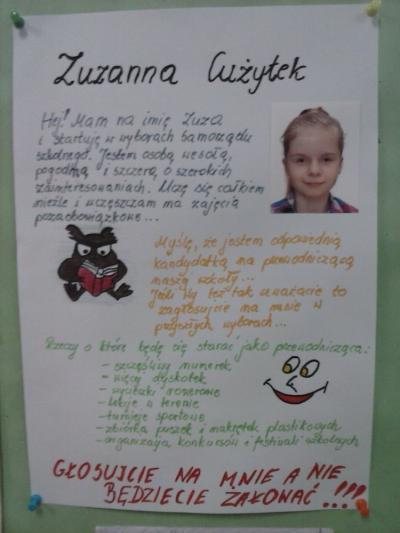 Zuzanna Cużytek
Hej! Mam na imię Zuza
i startuję w wyborach Samorządu
szkolnego. Jestem osobą wesołą,
pogodną i szczerą, o szerokich
zainteresowaniach. Uczę się całkiem
nieźle i uczęszczam na zajęcia
pozaobowiązkowe...
Myślę, że jestem odpowiednią
kandydatką na przewodniczącą
naszej szkoły...
Jeśli Wy też tak uważacie to
zagłosujcie na mnie w
przyszłych wyborach...
Rzeczy o które będę się starać jako przewodnicząca:
- szczęśliwy numerek
- więcej dyskotek
- wycieczki rowerowe
- lekcje w terenie
- turnieje sportowe
- zbiórka puszek i nakrętek plastikowych
- organizacja konkursów i festiwali szkolnych
GŁOSUJCIE NA MNIE A NIE
BĘDZIECIE ŻAŁOWAĆ!!!